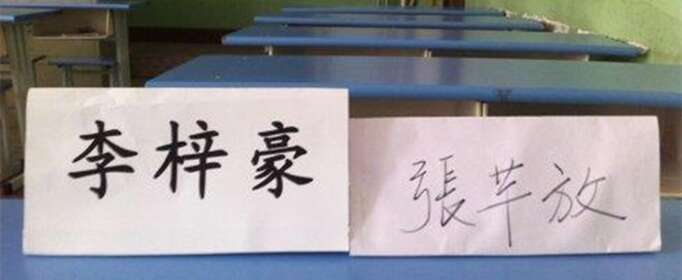 李梓豪
張芊放